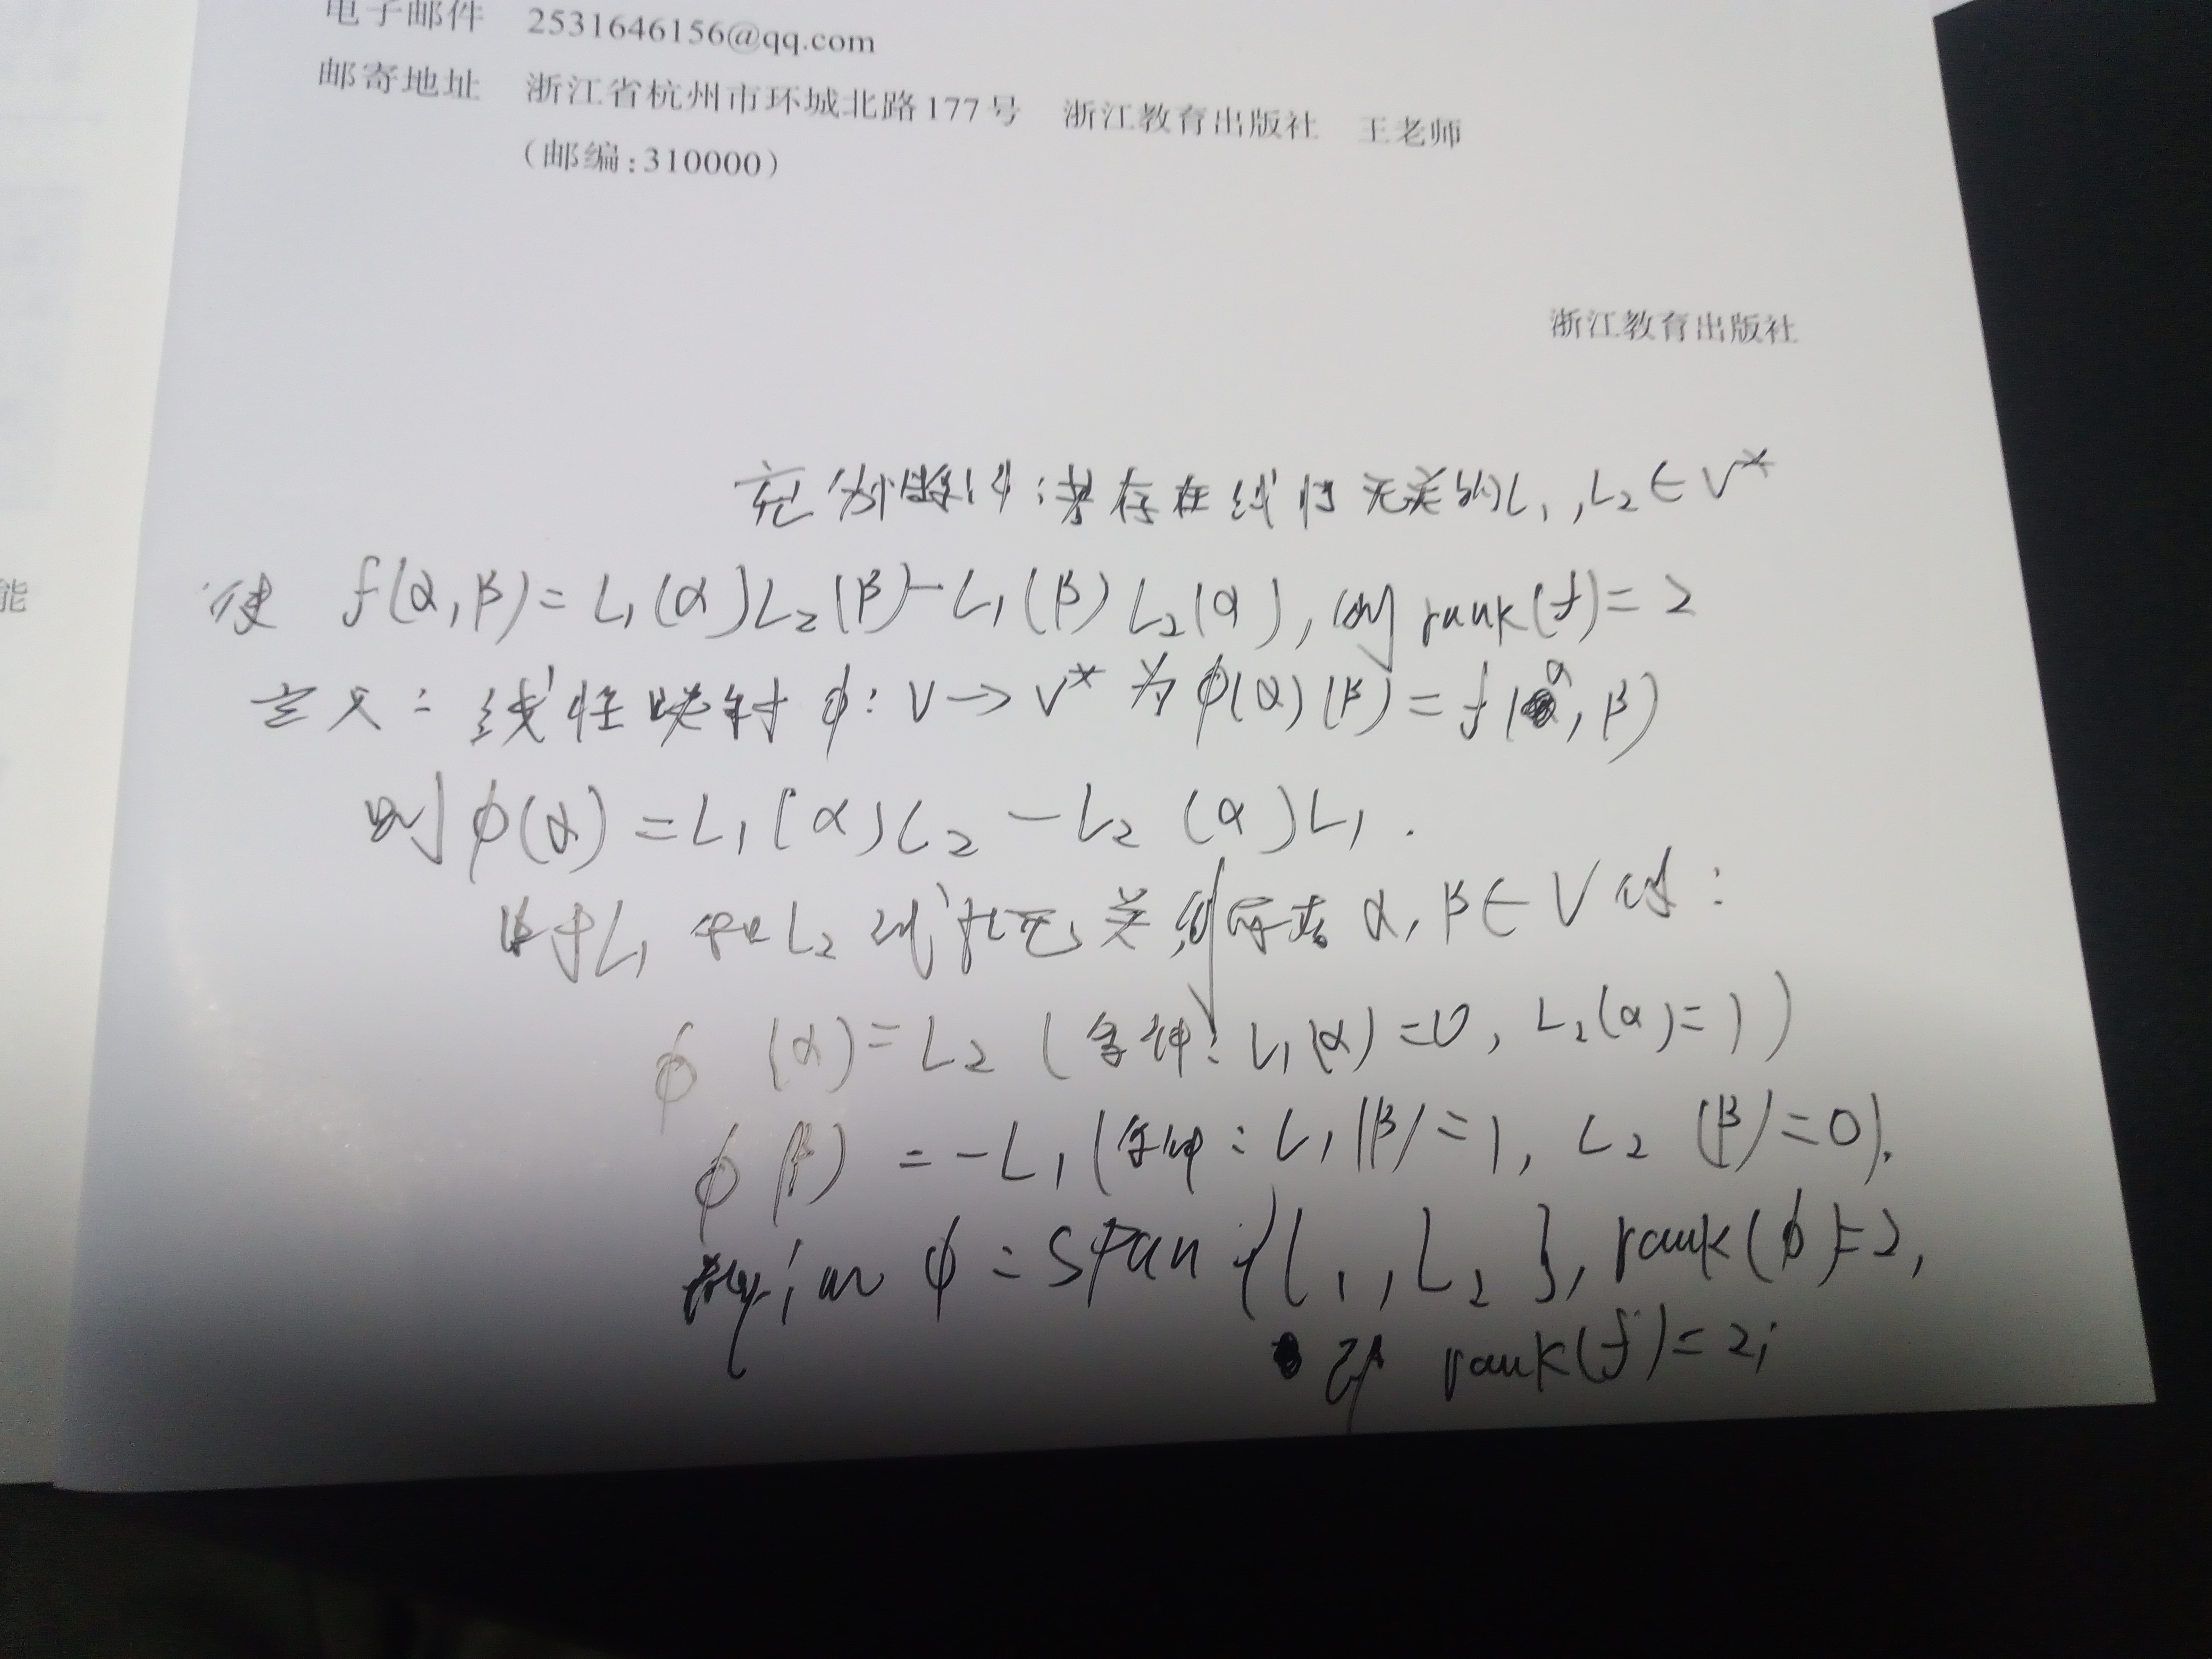 电子邮件 2531646156@qq.com
邮寄地址 浙江省杭州市环城北路177号 浙江教育出版社 王老师
(邮编:310000)
浙江教育出版社
能
充分条件:若存在线性无关的L₁,L₂∈V*
使 f(α,β)=L₁(α)L₂(β)-L₁(β)L₂(α),则rank(f)=2
定义:线性映射 φ:V→V* 为φ(α)(β)=f(α,β)
则φ(α)=L₁(α)L₂-L₂(α)L₁.
由于L₁和L₂线性无关,则存在α,β∈V使:
φ(α)=L₂(条件:L₁(α)=0,L₂(α)=1)
φ(β)=-L₁(条件:L₁(β)=1,L₂(β)=0).
im φ=span{L₁,L₂},rank(φ)=2,
即 rank(f)=2;